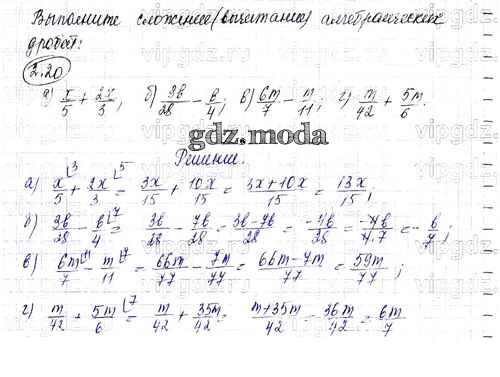 Выполните сложение (вычитание) алгебраических
дробей:
2.20
а) x/5 + 2x/3; б) 3b/28 - b/4; в) 6m/7 - m/11; г) m/42 + 5m/6.
gdz.moda
Решение.
а) x/5 + 2x/3 = 3x/15 + 10x/15 = 3x+10x/15 = 13x/15;
б) 3b/28 - b/4 = 3b/28 - 7b/28 = 3b-7b/28 = -4b/28 = -4b/4·7 = -b/7;
в) 6m/7 - m/11 = 66m/77 - 7m/77 = 66m-7m/77 = 59m/77;
г) m/42 + 5m/6 = m/42 + 35m/42 = m+35m/42 = 36m/42 = 6m/7